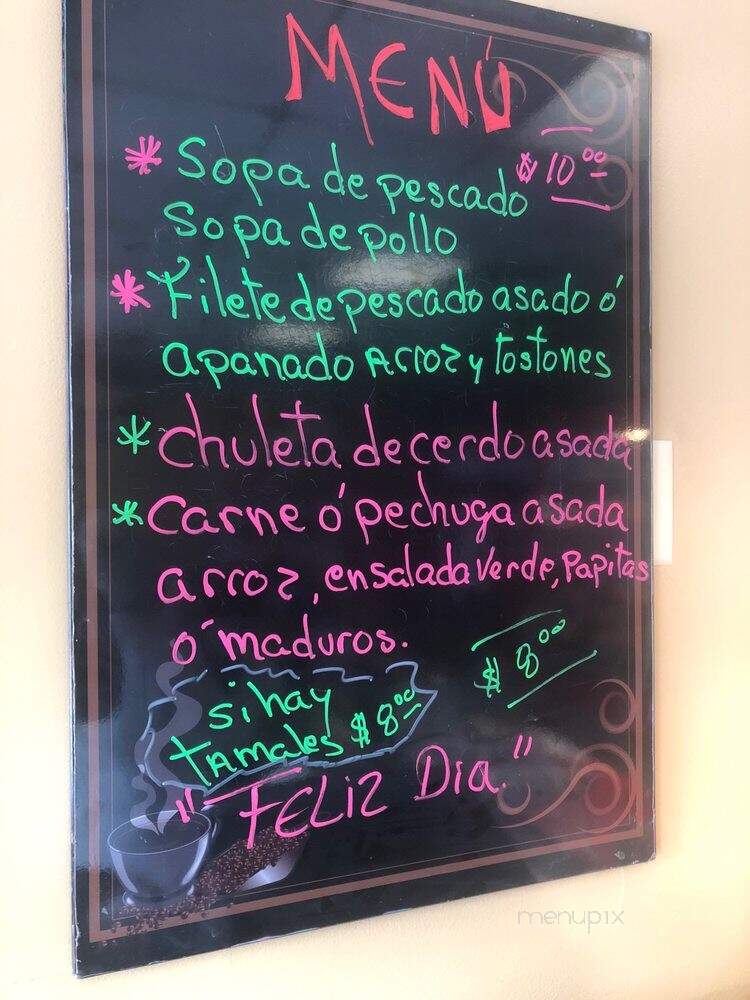 MENÚ
* Sopa de pescado $10.00
Sopa de pollo
* Filete de pescado asado ó
apanado Arroz y tostones
* chuleta de cerdo asada
* Carne ó pechuga asada
arroz, ensalada verde, papitas
ó maduros.
$8.00
si hay
tamales $8.00
"FELIZ Dia."
menupix